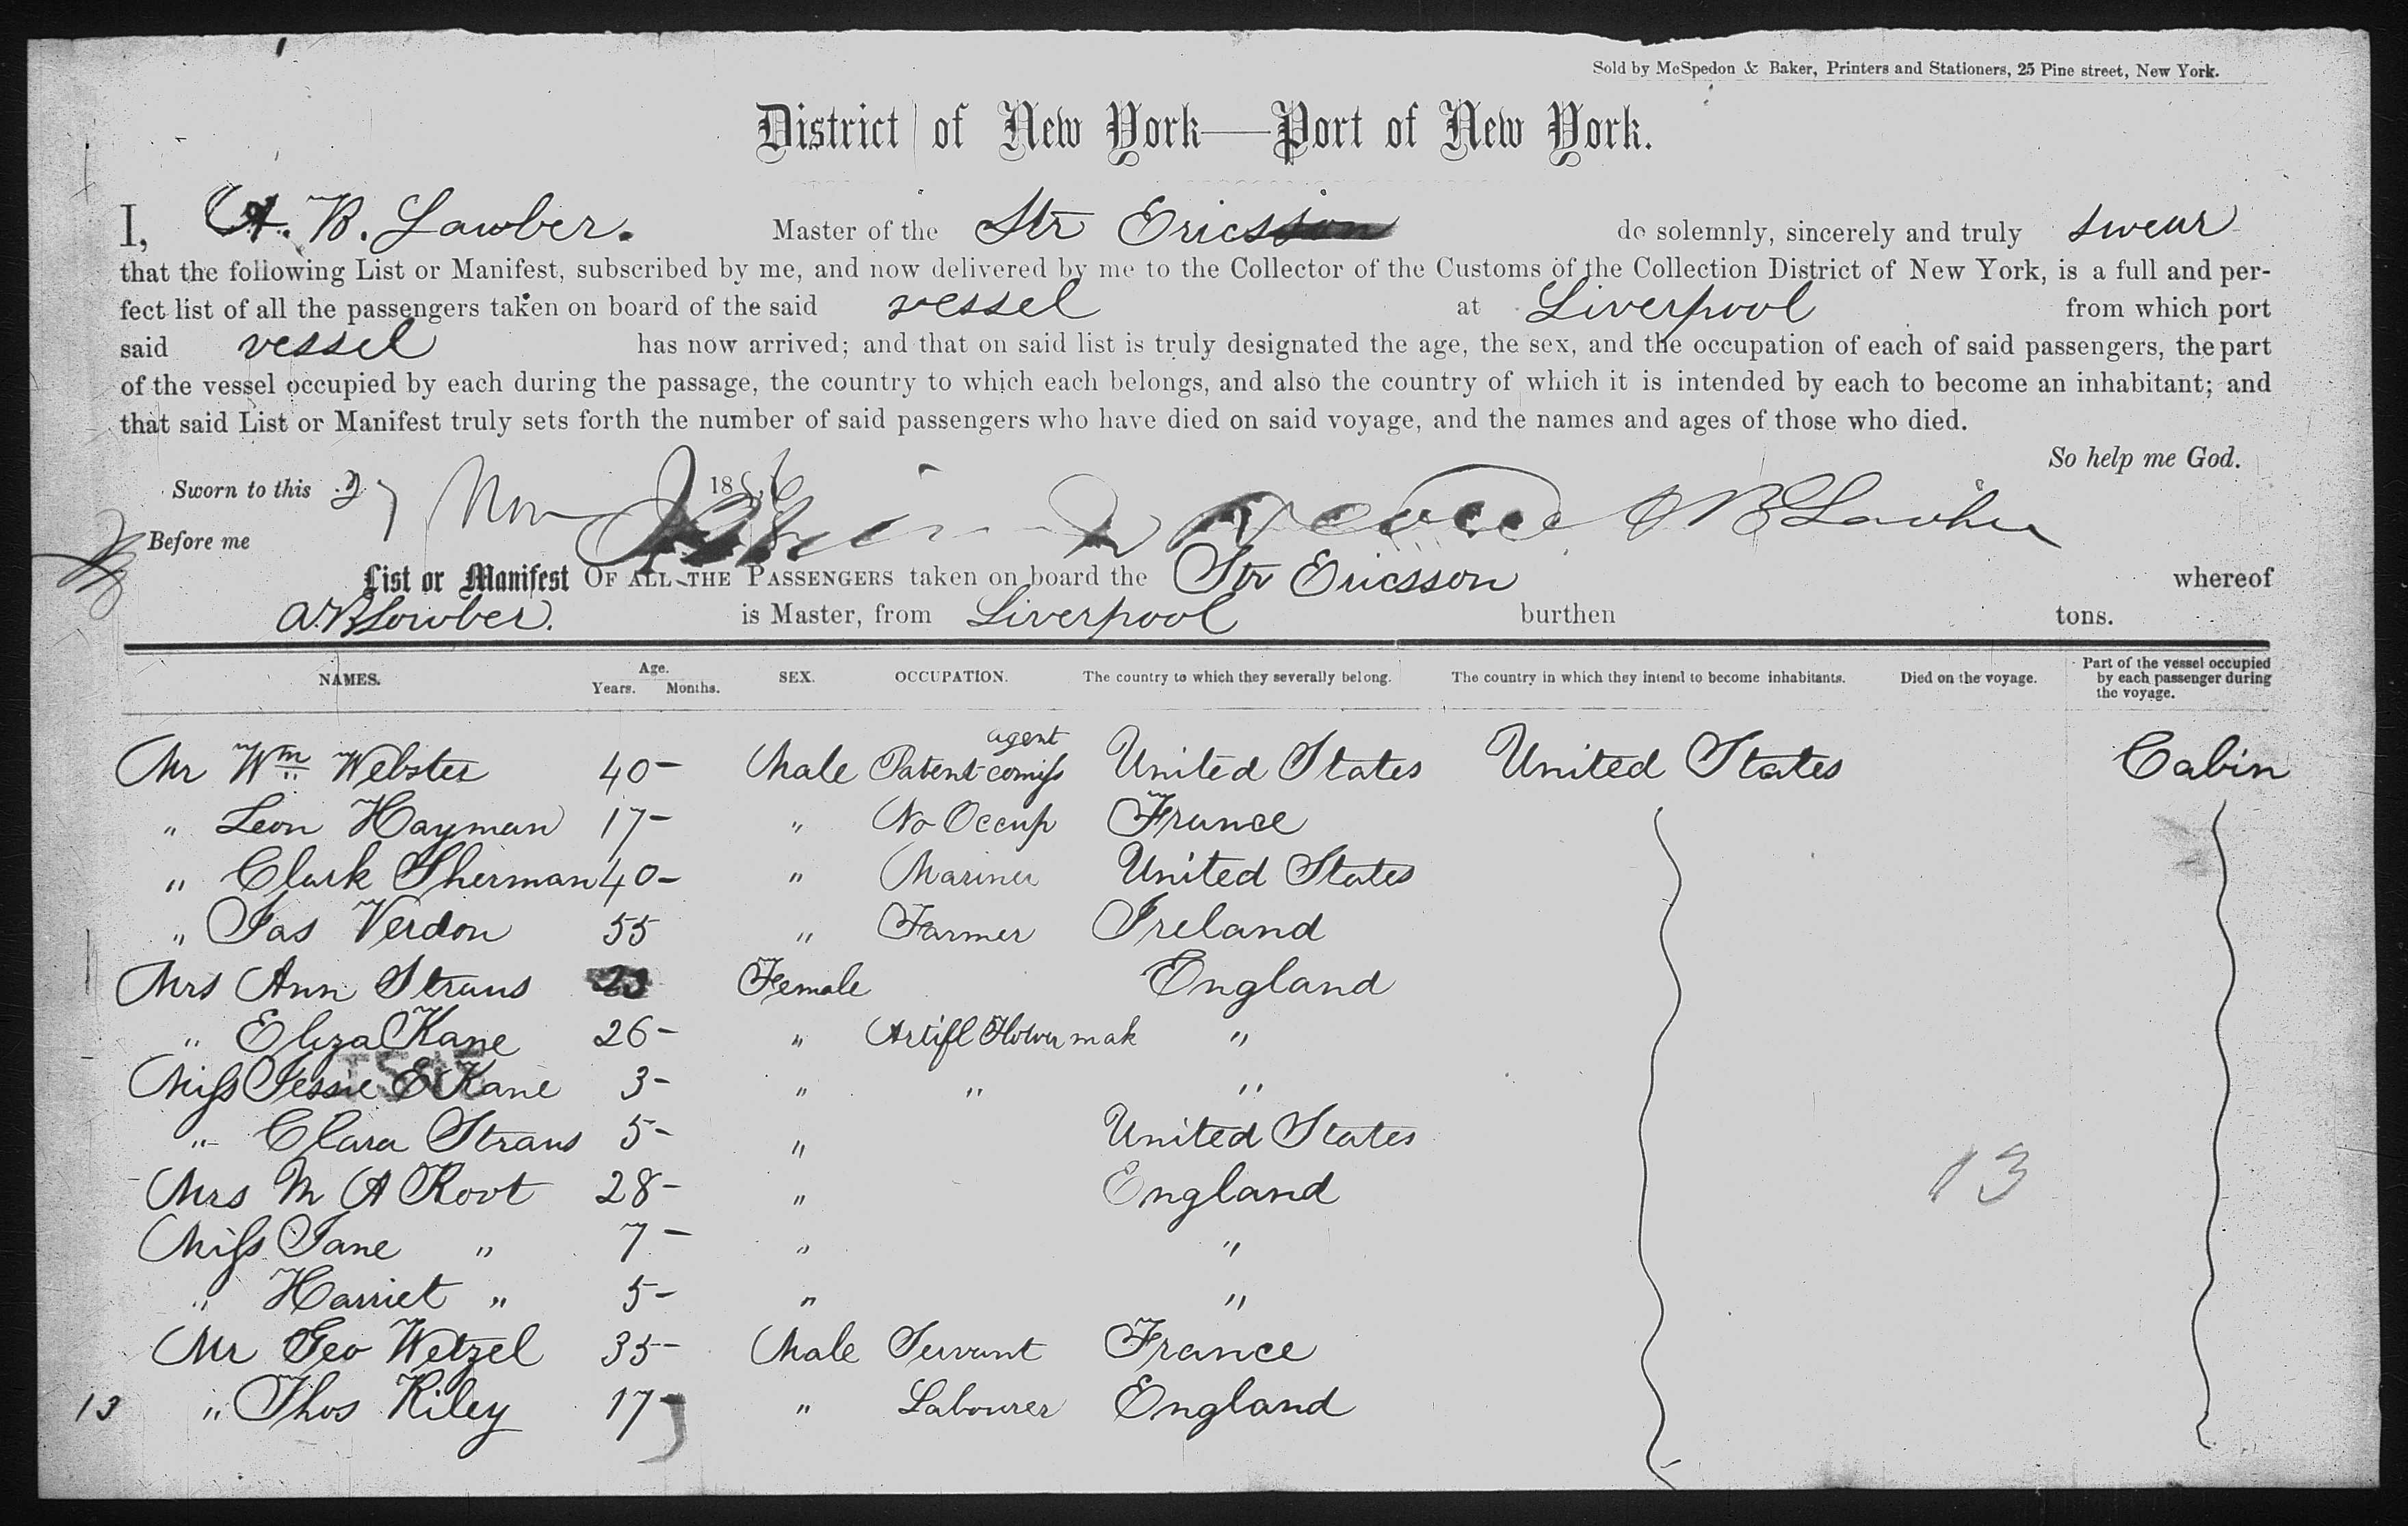 Sold by McSpedon & Baker, Printers and Stationers, 25 Pine street, New York.
District of New York—Port of New York.
I, A. B. Lowber. Master of the Str Ericsson do solemnly, sincerely and truly swear
that the following List or Manifest, subscribed by me, and now delivered by me to the Collector of the Customs of the Collection District of New York, is a full and per-
fect list of all the passengers taken on board of the said vessel at Liverpool from which port
said vessel has now arrived; and that on said list is truly designated the age, the sex, and the occupation of each of said passengers, the part
of the vessel occupied by each during the passage, the country to which each belongs, and also the country of which it is intended by each to become an inhabitant; and
that said List or Manifest truly sets forth the number of said passengers who have died on said voyage, and the names and ages of those who died.
So help me God.
Sworn to this 27 Nov 1856 A B Lowber
Before me
List or Manifest OF ALL THE PASSENGERS taken on board the Str Ericsson whereof
A. B Lowber. is Master, from Liverpool burthen tons.
NAMES. Age. Years. Months. SEX. OCCUPATION. The country to which they severally belong. The country in which they intend to become inhabitants. Died on the voyage. Part of the vessel occupied by each passenger during the voyage.
Mr Wm Webster 40- Male Patent comiss agent United States United States Cabin
" Leon Hayman 17- " No Occup France
" Clark Sherman 40- " Mariner United States
" Jas Verdon 55 " Farmer Ireland
Mrs Ann Straus 23 Female England
" Eliza Kane 26- " Artifl Flower mak "
Miss Jessie E Kane 3- " " "
" Clara Straus 5- " United States
Mrs M A Root 28- " England 13
Miss Jane " 7- " "
" Harriet " 5- " "
Mr Geo Wetzel 35- Male Servant France
13 " Thos Riley 17- " Labourer England